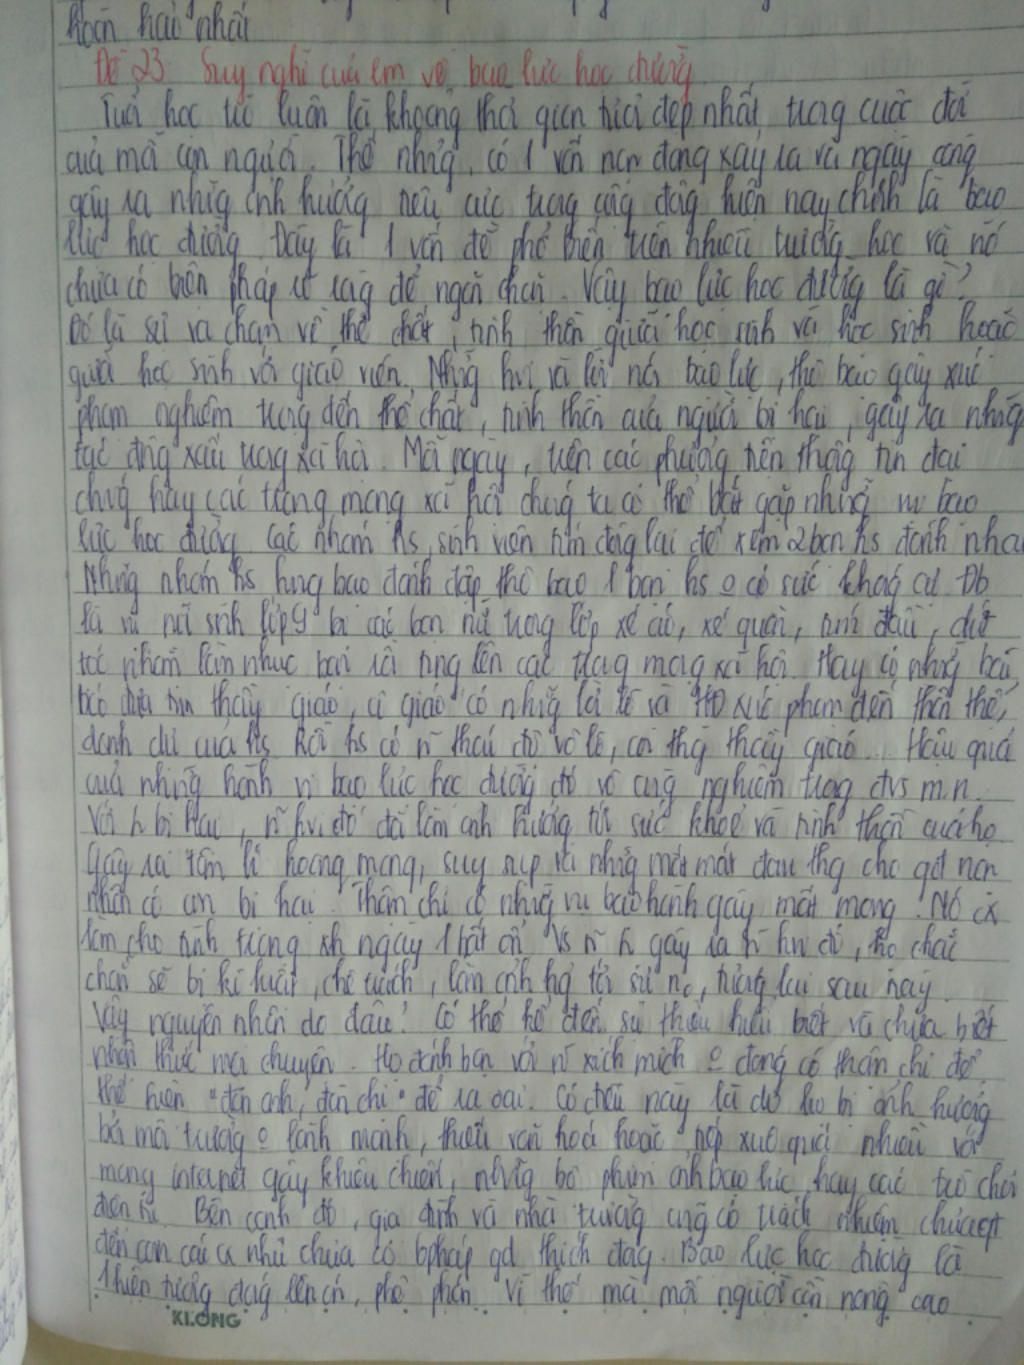 hoàn hảo nhất
Đề 23: Suy nghĩ của em về bạo lực học đường
Tuổi học trò luôn là khoảng thời gian tươi đẹp nhất trong cuộc đời
của mỗi con người. Thế nhưng, có 1 vấn nạn đang xảy ra và ngày càng
gây ra những ảnh hưởng tiêu cực trong cộng đồng hiện nay chính là bạo
lực học đường. Đây là 1 vấn đề phổ biến trên nhiều trường học và nó
chưa có biện pháp rõ ràng để ngăn chặn. Vậy bạo lực học đường là gì?
Đó là sự va chạm về thể chất, tinh thần giữa học sinh và học sinh hoặc
giữa học sinh với giáo viên. Những hvi và lời nói bạo lực, thô bạo gây xúc
phạm nghiêm trọng đến thể chất, tinh thần của người bị hại, gây ra những
tác động xấu trong xã hội. Mỗi ngày, trên các phương tiện thông tin đại
chúng hay các trang mạng xã hội chúng ta có thể bắt gặp những vụ bạo
lực học đường. Các nhóm hs, sinh viên túm đông lại để xem 2 bạn hs đánh nhau
Những nhóm hs hung bạo đánh đập thô bạo 1 bạn hs o có sức kháng cự. Đb
là vụ nữ sinh lớp 9 bị các bạn nữ trong lớp xé áo, xé quần, túm đầu, giật
tóc nhằm làm nhục bạn rồi tung lên các trang mạng xã hội. Hay có những bài
báo đưa tin thầy giáo, cô giáo có những lời lẽ và HĐ xúc phạm đến thân thể,
danh dự của hs. Rồi hs có n~ thái độ vô lễ, coi thg thầy giáo... Hậu quả
của những hành vi bạo lực học đường đó vô cùng nghiêm trọng đvs m.n.
Với n bị hại, n~ hvi đó đã làm ảnh hưởng tới sức khoẻ và tinh thần của họ
Gây ra tâm lí hoang mang, suy sụp và những mất mát đau thg cho gđ nạn
nhân có con bị hại. Thậm chí có những vụ bạo hành gây mất mạng. Nó còn
làm cho tình trạng xh ngày 1 bất ổn. Vs n~ n gây ra n~ hvi đó, họ chắc
chắn sẽ bị kỉ luật, chê trách, làm ảnh hg tới sự ng, tương lai sau này.
Vậy nguyên nhân do đâu? Có thể kể đến sự thiếu hiểu biết và chưa biết
nhận thức mọi chuyện. Họ đánh bạn với n~ xích mích o đáng có thậm chí để
thể hiện "đàn anh, đàn chị" để ra oai. Có điều này là do họ bị ảnh hưởng
bởi môi trường o lành mạnh, thiếu văn hoá hoặc tiếp xúc quá nhiều với
mạng internet gây khiêu chiến, những bộ phim ảnh bạo lực hay các trò chơi
điện tử. Bên cạnh đó, gia đình và nhà trường cũng có trách nhiệm chưa qt
đến con cái cx như chưa có bpháp gd thích đáng. Bạo lực học đường là
1 hiện tượng đáng lên án, phê phán. Vì thế mà mỗi người cần nâng cao
KLONG